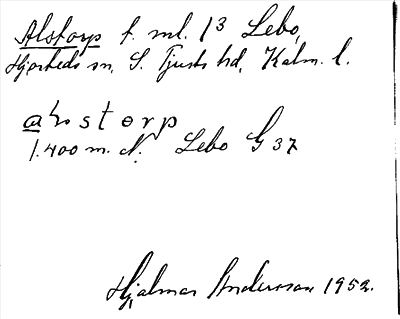 Alstorp t. ml. 13 Lebo,
Hjorteds sn, S. Tjusts hd, Kalm. l.
storp
1.400 m. N. Lebo G 37
Hjalmar Andersson 1952.